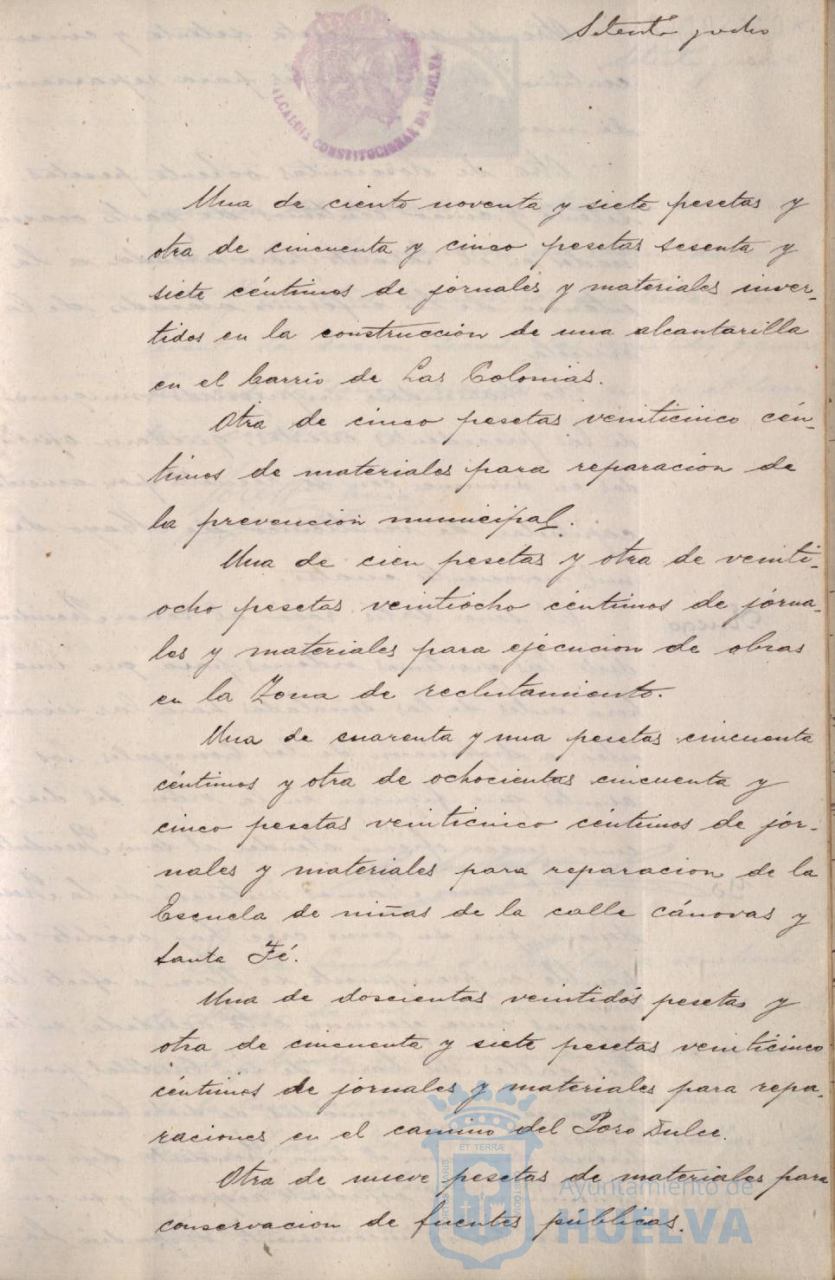 Setenta y ocho
ALCALDIA CONSTITUCIONAL DE HUELVA
Una de ciento noventa y siete pesetas y
otra de cincuenta y cinco pesetas sesenta y
siete céntimos de jornales y materiales inver-
tidos en la construcción de una alcantarilla
en el barrio de Las Colonias.
Otra de cinco pesetas veinticinco cén-
timos de materiales para reparacion de
la prevención municipal.
Una de cien pesetas y otra de veinti-
ocho pesetas veintiocho céntimos de jorna-
les y materiales para ejecucion de obras
en la Zona de reclutamiento.
Una de cuarenta y una pesetas cincuenta
céntimos y otra de ochocientas cincuenta y
cinco pesetas veinticinco céntimos de jor-
nales y materiales para reparacion de la
Escuela de niñas de la calle Cánovas y
Santa Fé.
Una de doscientas veintidós pesetas y
otra de cincuenta y siete pesetas veinticinco
céntimos de jornales y materiales para repa-
raciones en el camino del Pozo Dulce.
Otra de nueve pesetas de materiales para
conservacion de fuentes públicas.
ET TERRÆ
Ayuntamiento de
HUELVA